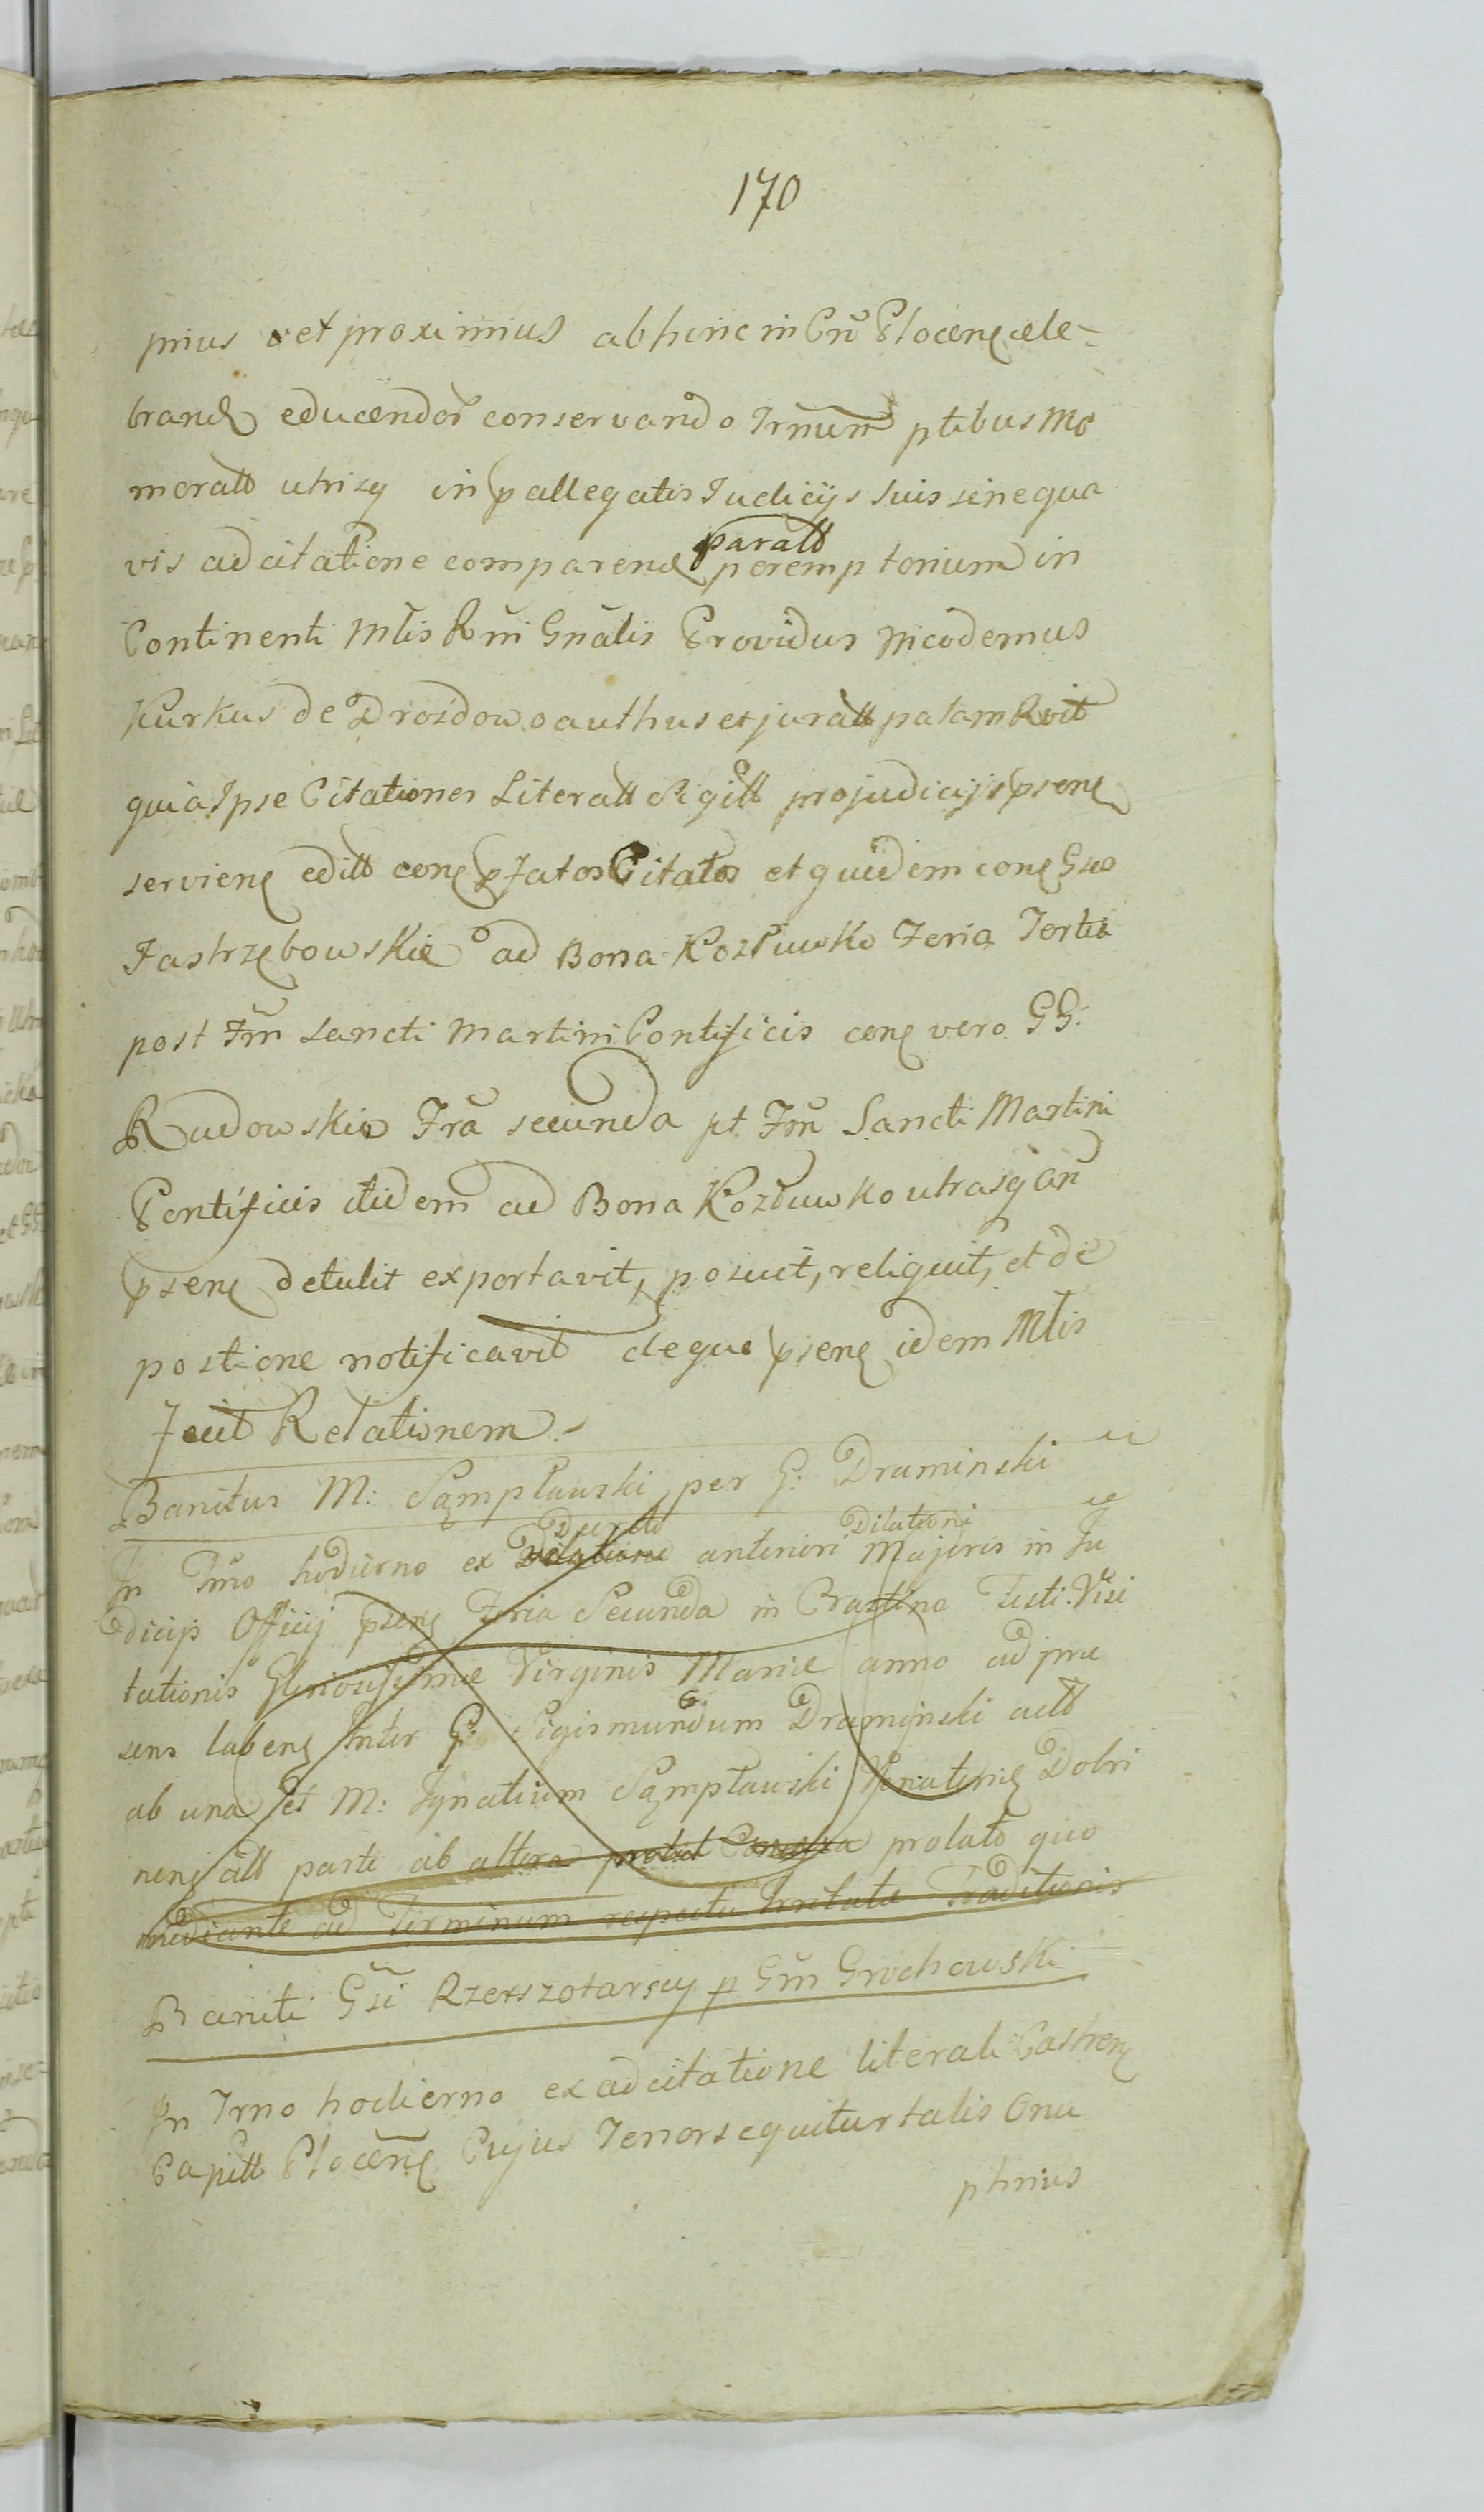 170
prius et proximius abhinc in Crō Płocenꝭ cele-
brandꝭ educendor̃ conservando Trm̃um ptibus Me
moratt utrisq in pallegatis Judicijs suis sine qua
vis adcitatione comparendꝭ paratt peremptorium in
Continenti Mtis Rñi Gnãlis Providus Nicodemus
Kurkus de Drozdowo authus et juratt palam Rvit
quia Ipse Citationes Literatt Sigitt pro judicijs psenꝭ
servienꝭ editt conꝭ pfatos Citatos et quidem conꝭ Gsos
Jastrzębowskie ad Bona Kozłuwko Feria Tertia
post Fm̃ Sancti Martini Pontificis conꝭ vero GG:
Rudowskie Frã secunda pt Fm̃ Sancti Martini
Pontificis itidem ad Bona Kozłuwko utrasq añ
psenꝭ detulit exportavit, posuit, reliquit, et de
postione notificavit deque psenꝭ idem Mtis
Fecit Relationem.-
Banitus M: Sąmpławski per G: Draminski
In Tm̃o hodierno ex Dilatione Decreto anteriori Dilationi Majoris in Ju
dicijs Officij psenꝭ Feria Secunda in Crastino Festi Visi
tationis Gloriosissimæ Virginis Mariæ anno ad præ
sens labenꝭ Inter G: Sigismundum Draminski actt
ab una et M: Ignatium Sąmpławski Venatorꝭ Dobri
nenꝭ citt parte ab altera prolato quo
mediante ad Terminum respectu Irritatæ Traditionis
Baniti Gsi Rzeszotarscy p Gm̃ Grochowski
In Trno hodierno ex adcitatione literali Castrenꝭ
Capitt Płocenꝭ Cujus Tenor sequitur talis Onu
phrius